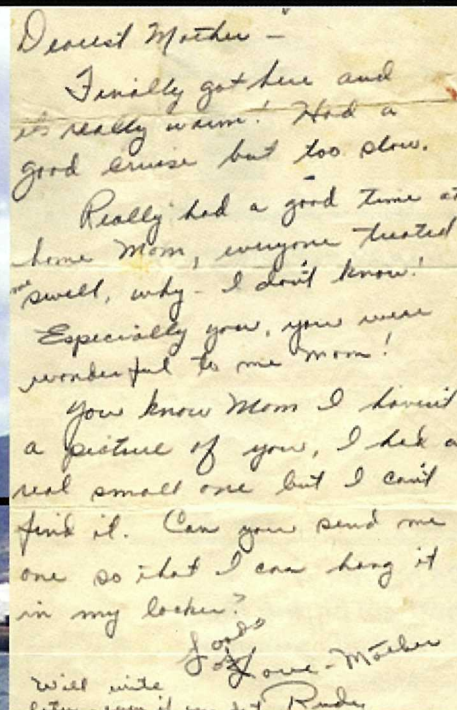 Dearest Mother -
Finally got here and
it's really warm! Had a
good cruise but too slow.
Really had a good time at
home Mom, everyone treated
me swell, why - I don't know!
Especially you, you were
wonderful to me Mom!
You know Mom I haven't
a picture of you, I had a
real small one but I can't
find it. Can you send me
one so that I can hang it
in my locker?
Loads
of Love - Mother
Will write Rudy